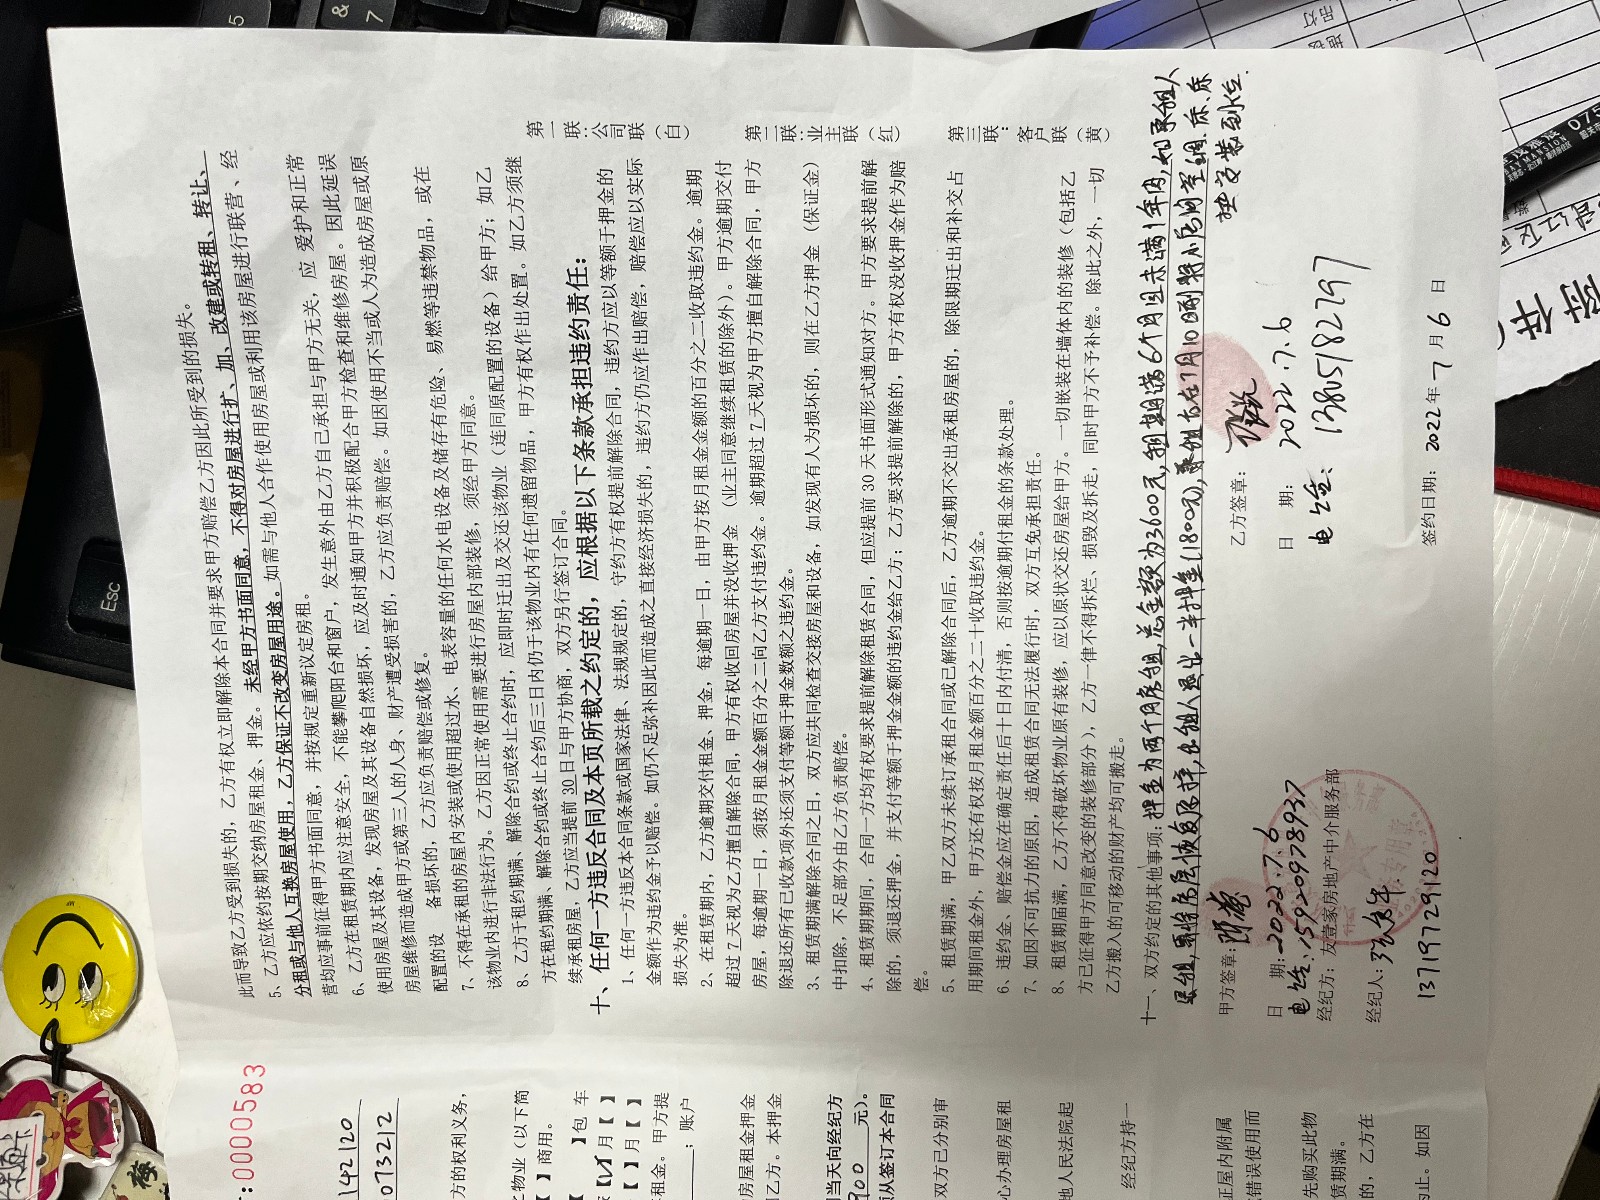 此而导致乙方受到损失的，乙方有权立即解除本合同并要求甲方赔偿乙方因此所受到的损失。
5、乙方应依约按期交纳房屋租金、押金。未经甲方书面同意，不得对房屋进行扩、加、改建或转租、转让、
分租或与他人互换房屋使用，乙方保证不改变房屋用途。如需与他人合作使用房屋或利用该房屋进行联营、经
营均应事前征得甲方书面同意，并按规定重新议定房租。
6、乙方在租赁期内应注意安全，不能攀爬阳台和窗户，发生意外由乙方自己承担与甲方无关，应 爱护和正常
使用房屋及其设备，发现房屋及其设备自然损坏，应及时通知甲方并积极配合甲方检查和维修房屋。因此延误
房屋维修而造成甲方或第三人的人身、财产遭受损害的，乙方应负责赔偿。如因使用不当或人为造成房屋或原
配置的设 备损坏的，乙方应负责赔偿或修复。
7、不得在承租的房屋内安装或使用超过水、电表容量的任何水电设备及储存有危险、易燃等违禁物品，或在
该物业内进行非法行为。乙方因正常使用需要进行房屋内部装修，须经甲方同意。
8、乙方于租约期满、解除合约或终止合约时，应即时迁出及交还该物业（连同原配置的设备）给甲方；如乙
方在租约期满、解除合约或终止合约后三日内仍于该物业内有任何遗留物品，甲方有权作出处置。如乙方须继
续承租房屋，乙方应当提前 30 日与甲方协商，双方另行签订合同。
十、任何一方违反合同及本页所载之约定的，应根据以下条款承担违约责任：
1、任何一方违反本合同条款或国家法律、法规规定的，守约方有权提前解除合同，违约方应以等额于押金的
金额作为违约金予以赔偿。如仍不足弥补因此而造成之直接经济损失的，违约方仍应作出赔偿，赔偿应以实际
损失为准。
2、在租赁期内，乙方逾期交付租金、押金，每逾期一日，由甲方按月租金金额的百分之二收取违约金。逾期
超过 7 天视为乙方擅自解除合同，甲方有权收回房屋并没收押金（业主同意继续租赁的除外）。甲方逾期交付
房屋，每逾期一日，须按月租金金额百分之二向乙方支付违约金。逾期超过 7 天视为甲方擅自解除合同，甲方
除退还所有已收款项外还须支付等额于押金数额之违约金。
3、租赁期满解除合同之日，双方应共同检查交接房屋和设备，如发现有人为损坏的，则在乙方押金（保证金）
中扣除，不足部分由乙方负责赔偿。
4、租赁期期间，合同一方均有权要求提前解除租赁合同，但应提前 30 天书面形式通知对方。甲方要求提前解
除的，须退还押金，并支付等额于押金金额的违约金给乙方；乙方要求提前解除的，甲方有权没收押金作为赔
偿。
5、租赁期满，甲乙双方未续订承租合同或已解除合同后，乙方逾期不交出承租房屋的，除限期迁出和补交占
用期间租金外，甲方还有权按月租金额百分之二十收取违约金。
6、违约金、赔偿金应在确定责任后十日内付清，否则按逾期付租金的条款处理。
7、如因不可抗力的原因，造成租赁合同无法履行时，双方互免承担责任。
8、租赁期届满，乙方不得破坏物业原有装修，应以原状交还房屋给甲方。一切嵌装在墙体内的装修（包括乙
方已征得甲方同意改变的装修部分），乙方一律不得拆烂、损毁及拆走，同时甲方不予补偿。除此之外，一切
乙方搬入的可移动的财产均可搬走。
十一、双方约定的其他事项：押金为两个月房租，总金额为3600元，租期满6个月但未满1年内，如承租人
退租，需将房屋恢复原样，出租人退出一半押金（1800元），在7月10日前将小房间空调、床、床
垫安装到位。
甲方签章：
日 期：2022.7.6
电话：15920978937
经纪方：友壹家房地产中介服务部
经纪人：
13719729120
乙方签章：
日 期：2022.7.6
电话：13805178297
签约日期：2022年 7 月 6 日
第一联：公司联（白）
第二联：业主联（红）
第三联：客户联（黄）
:0000583
142120
073212
方的权利义务，
物业（以下简
【 】商用。
】包 车
】月【 】
【 】月【 】
租金。甲方提
；账户
房屋租金押金
乙方。本押金
当天向经纪方
元）。
从签订本合同
双方已分别审
心办理房屋租
地人民法院起
经纪方持一
屋内附属
错误使用而
先购买此物
赁期满。
的，乙方在
止。如因
Esc
&
7
5
附件
梅
075